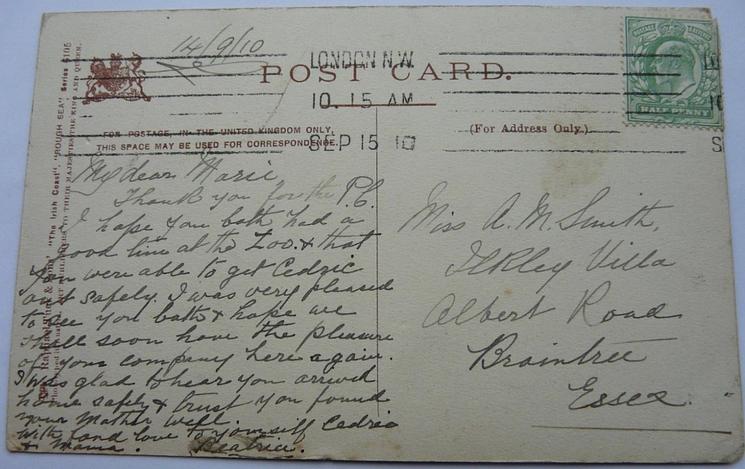 14/9/10
POST CARD.
LONDON N.W.
10.15 AM
SEP 15 10
HALF PENNY
FOR POSTAGE, IN THE UNITED KINGDOM ONLY,
THIS SPACE MAY BE USED FOR CORRESPONDENCE.
(For Address Only.)
"The Irish Coast". "ROUGH SEA" Series 6105
TO THEIR MAJESTIES THE KING AND QUEEN.
My dear Marie
Thank you for the P.C.
I hope you both had a
good time at the Zoo. & that
you were able to get Cedric
out safely. I was very pleased
to see you both & hope we
shall soon have the pleasure
of your company here again.
I was glad to hear you arrived
home safely & trust you found
your Mother well.
With fond love to yourself Cedric
& Mama. Beatrice.
Miss A. M. Smith,
Ilkley Villa
Albert Road
Braintree
Essex.